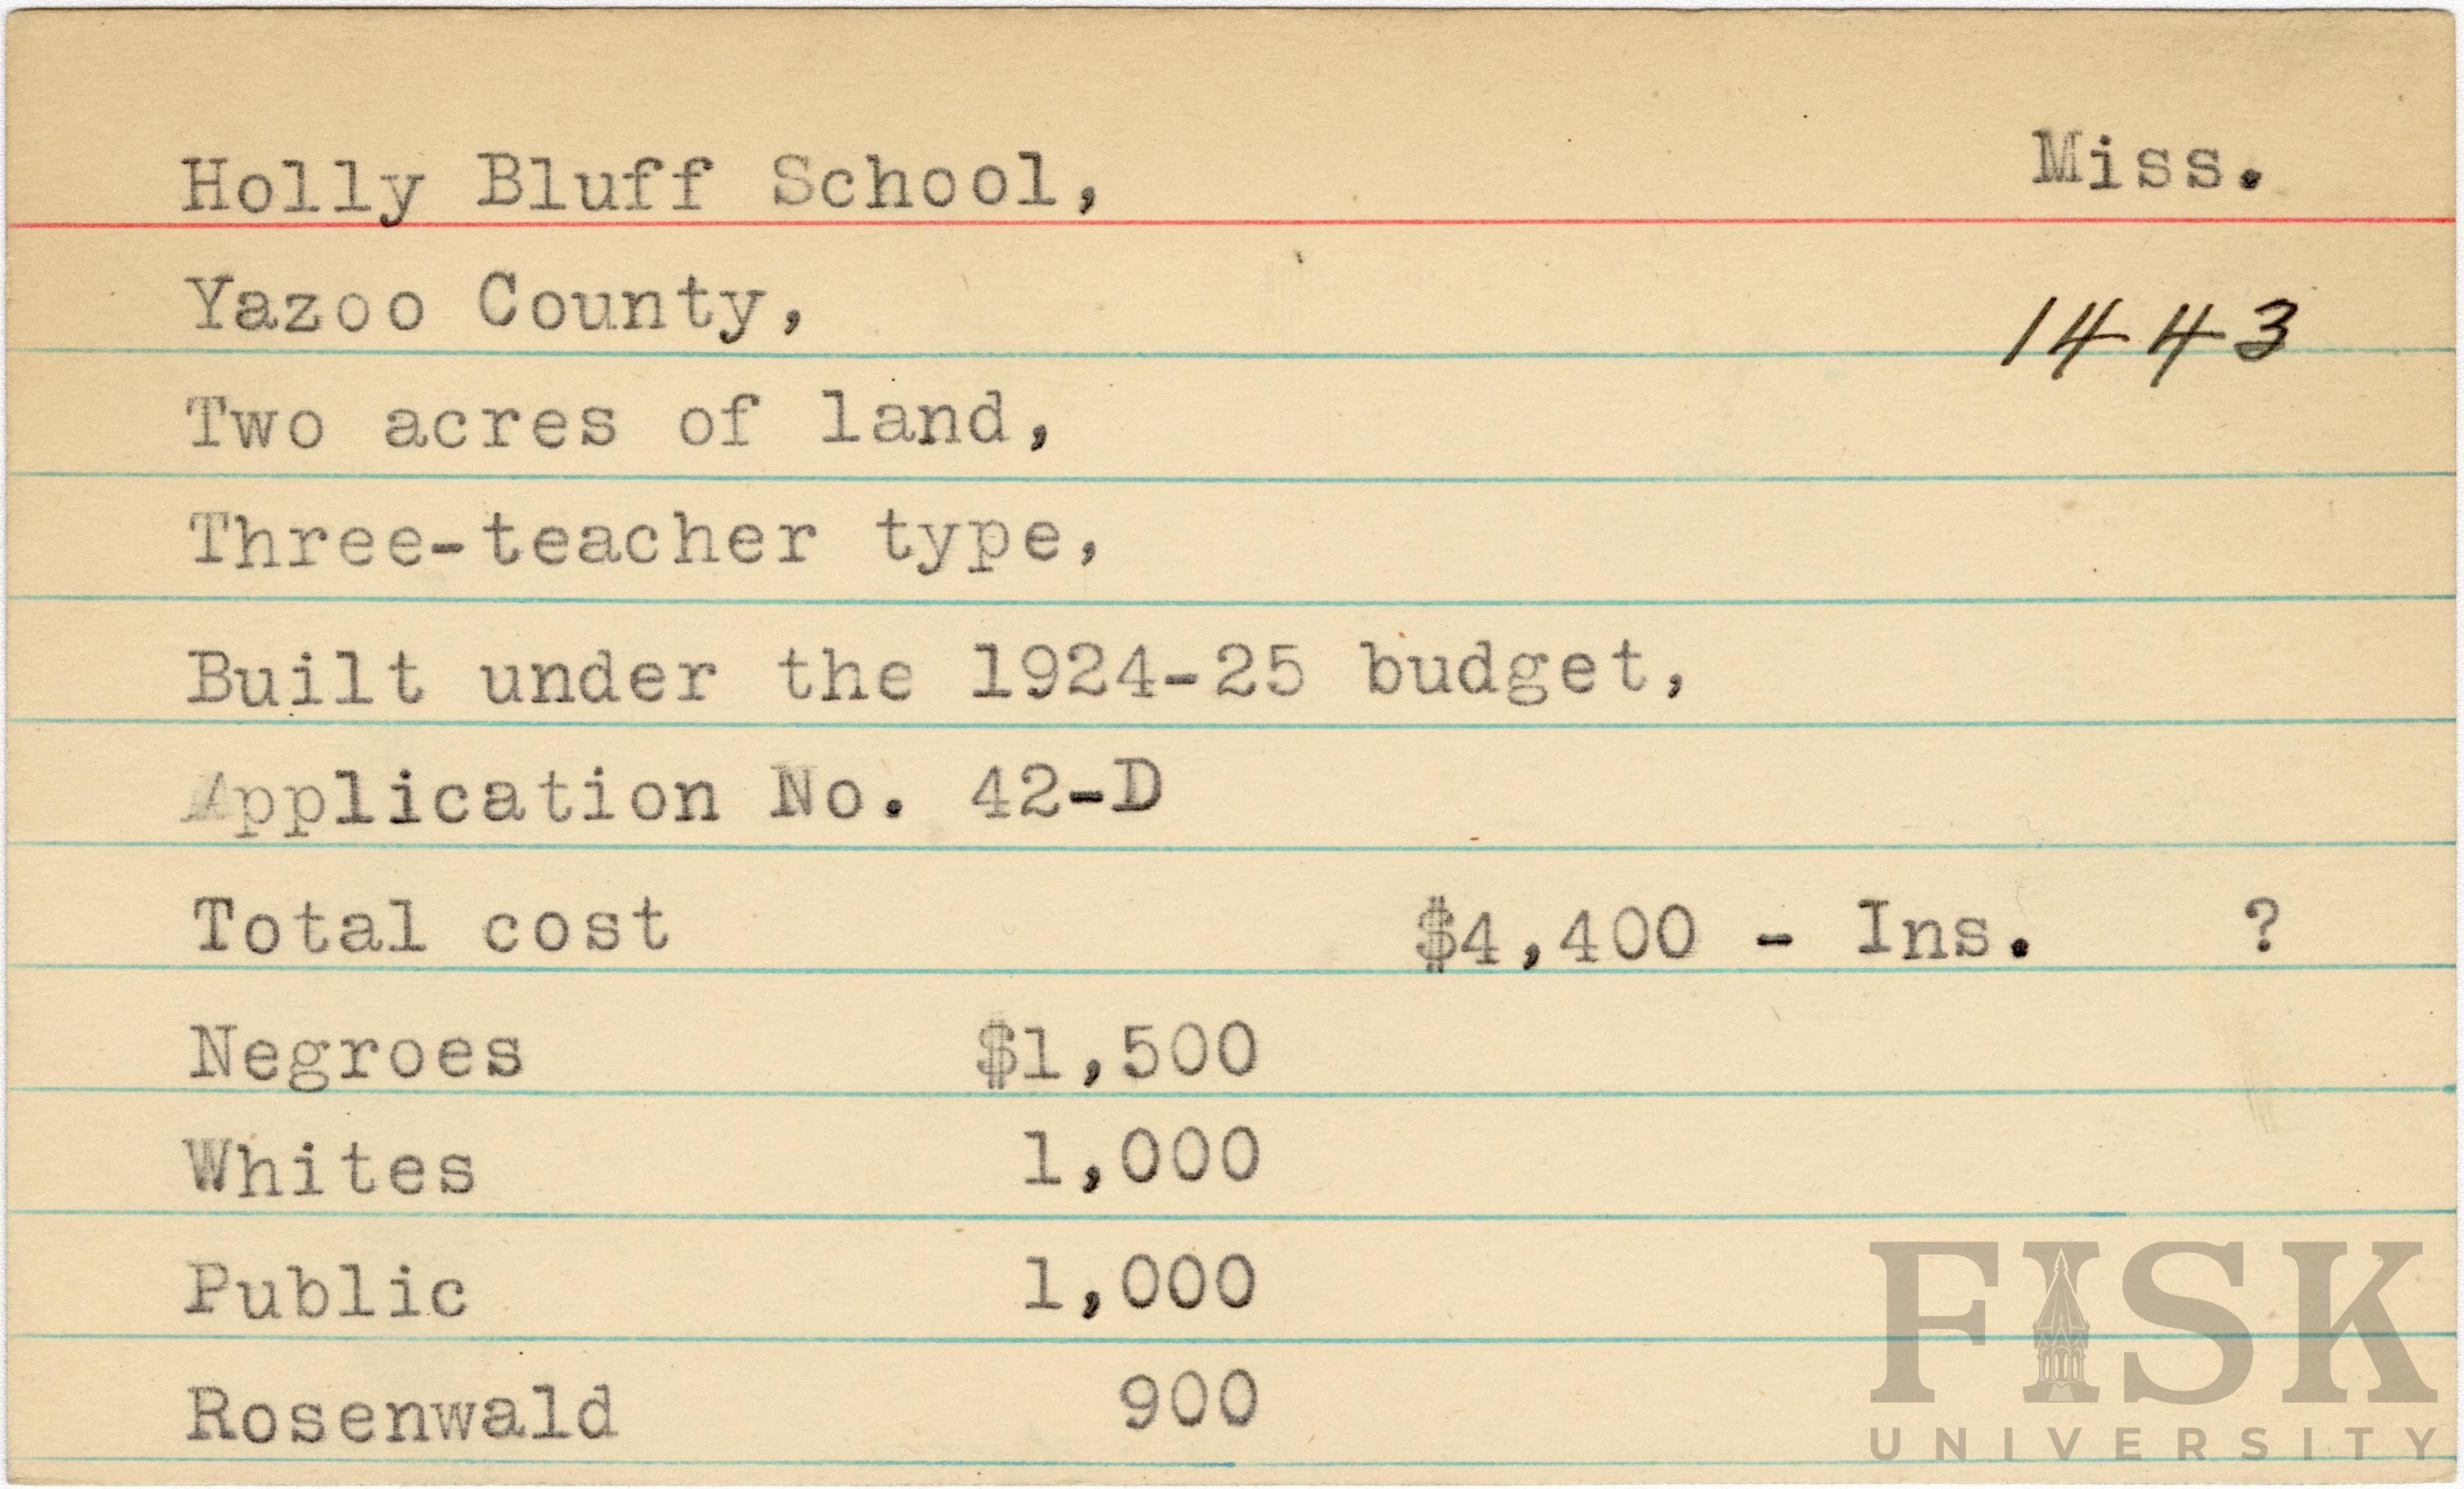 Holly Bluff School, Miss.
Yazoo County, 1443
Two acres of land,
Three-teacher type,
Built under the 1924-25 budget,
Application No. 42-D
Total cost $4,400 - Ins. ?
Negroes $1,500
Whites 1,000
Public 1,000
Rosenwald 900
FISK
UNIVERSITY